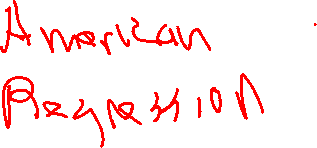 American
Regression